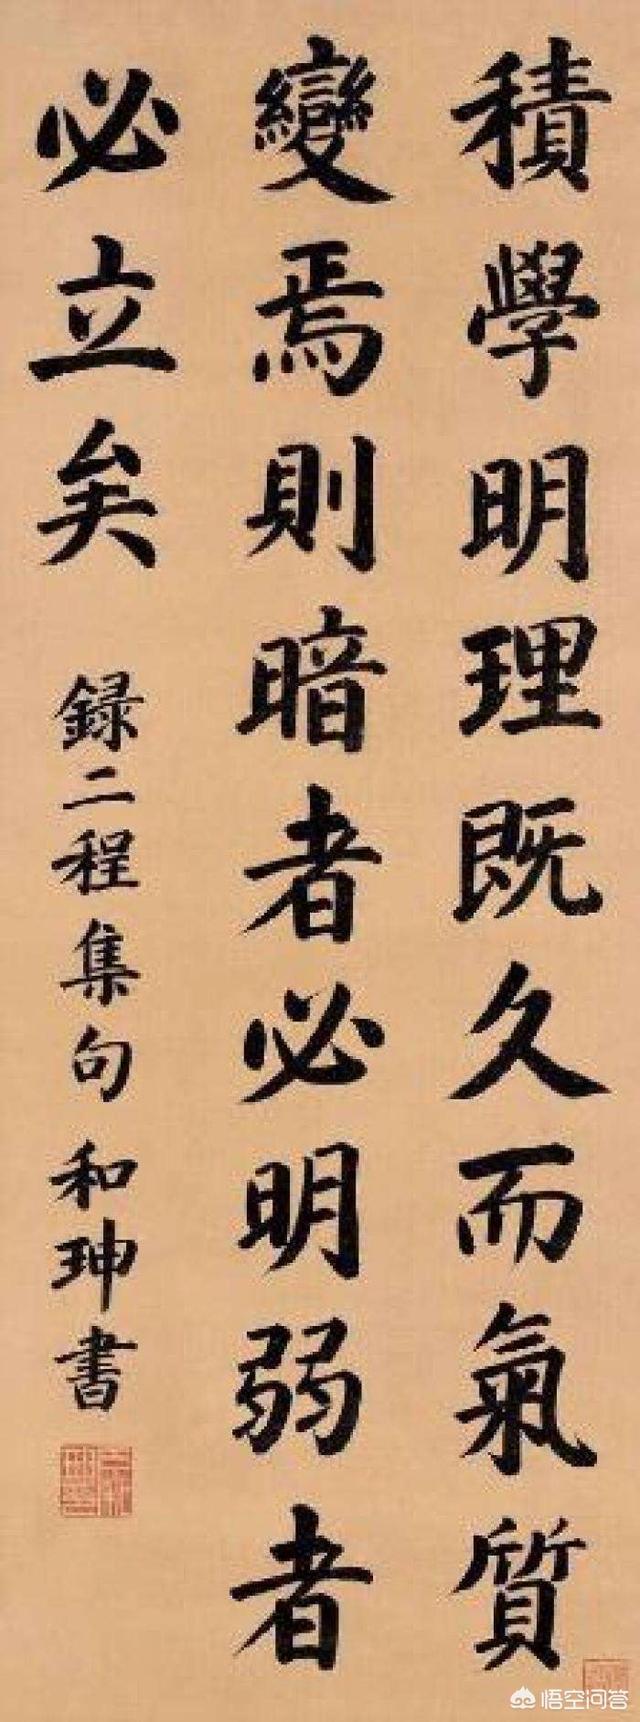 積學明理既久而氣質
變焉則暗者必明弱者
必立矣
録二程集句 和珅書
悟空问答